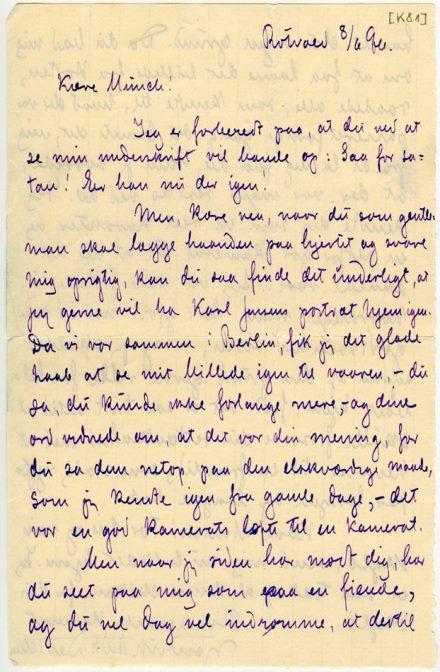 [K81]
Rötved 8/6 90.
Kære Münch!
Jeg er forberedt paa, at du ved at
se min underskrift vil bande op: Saa for sa-
tan! Er han nu der igen!
Men, kære ven, naar du som gentle-
man skal lægge haanden paa hjertet og svare
mig oprigtig, kan du saa finde det underligt, at
jeg gerne vil ha Karl Jensens portræt hjem igen.
Da vi var sammen i Berlin, fik jeg det glade
haab at se mit billede igen til vaaren, – du
sa, du kunde ikke forlange mere, – og dine
ord vidnede om, at det var din mening, for
du sa dem netop paa den elskværdige maade,
som jeg kendte igen fra gamle dage, – det
var en god kamerats løfte til en kamerat.
Men naar jeg siden har mødt dig, har
du seet paa mig som paa en fiende,
og du vil dog vel indrømme, at dertil